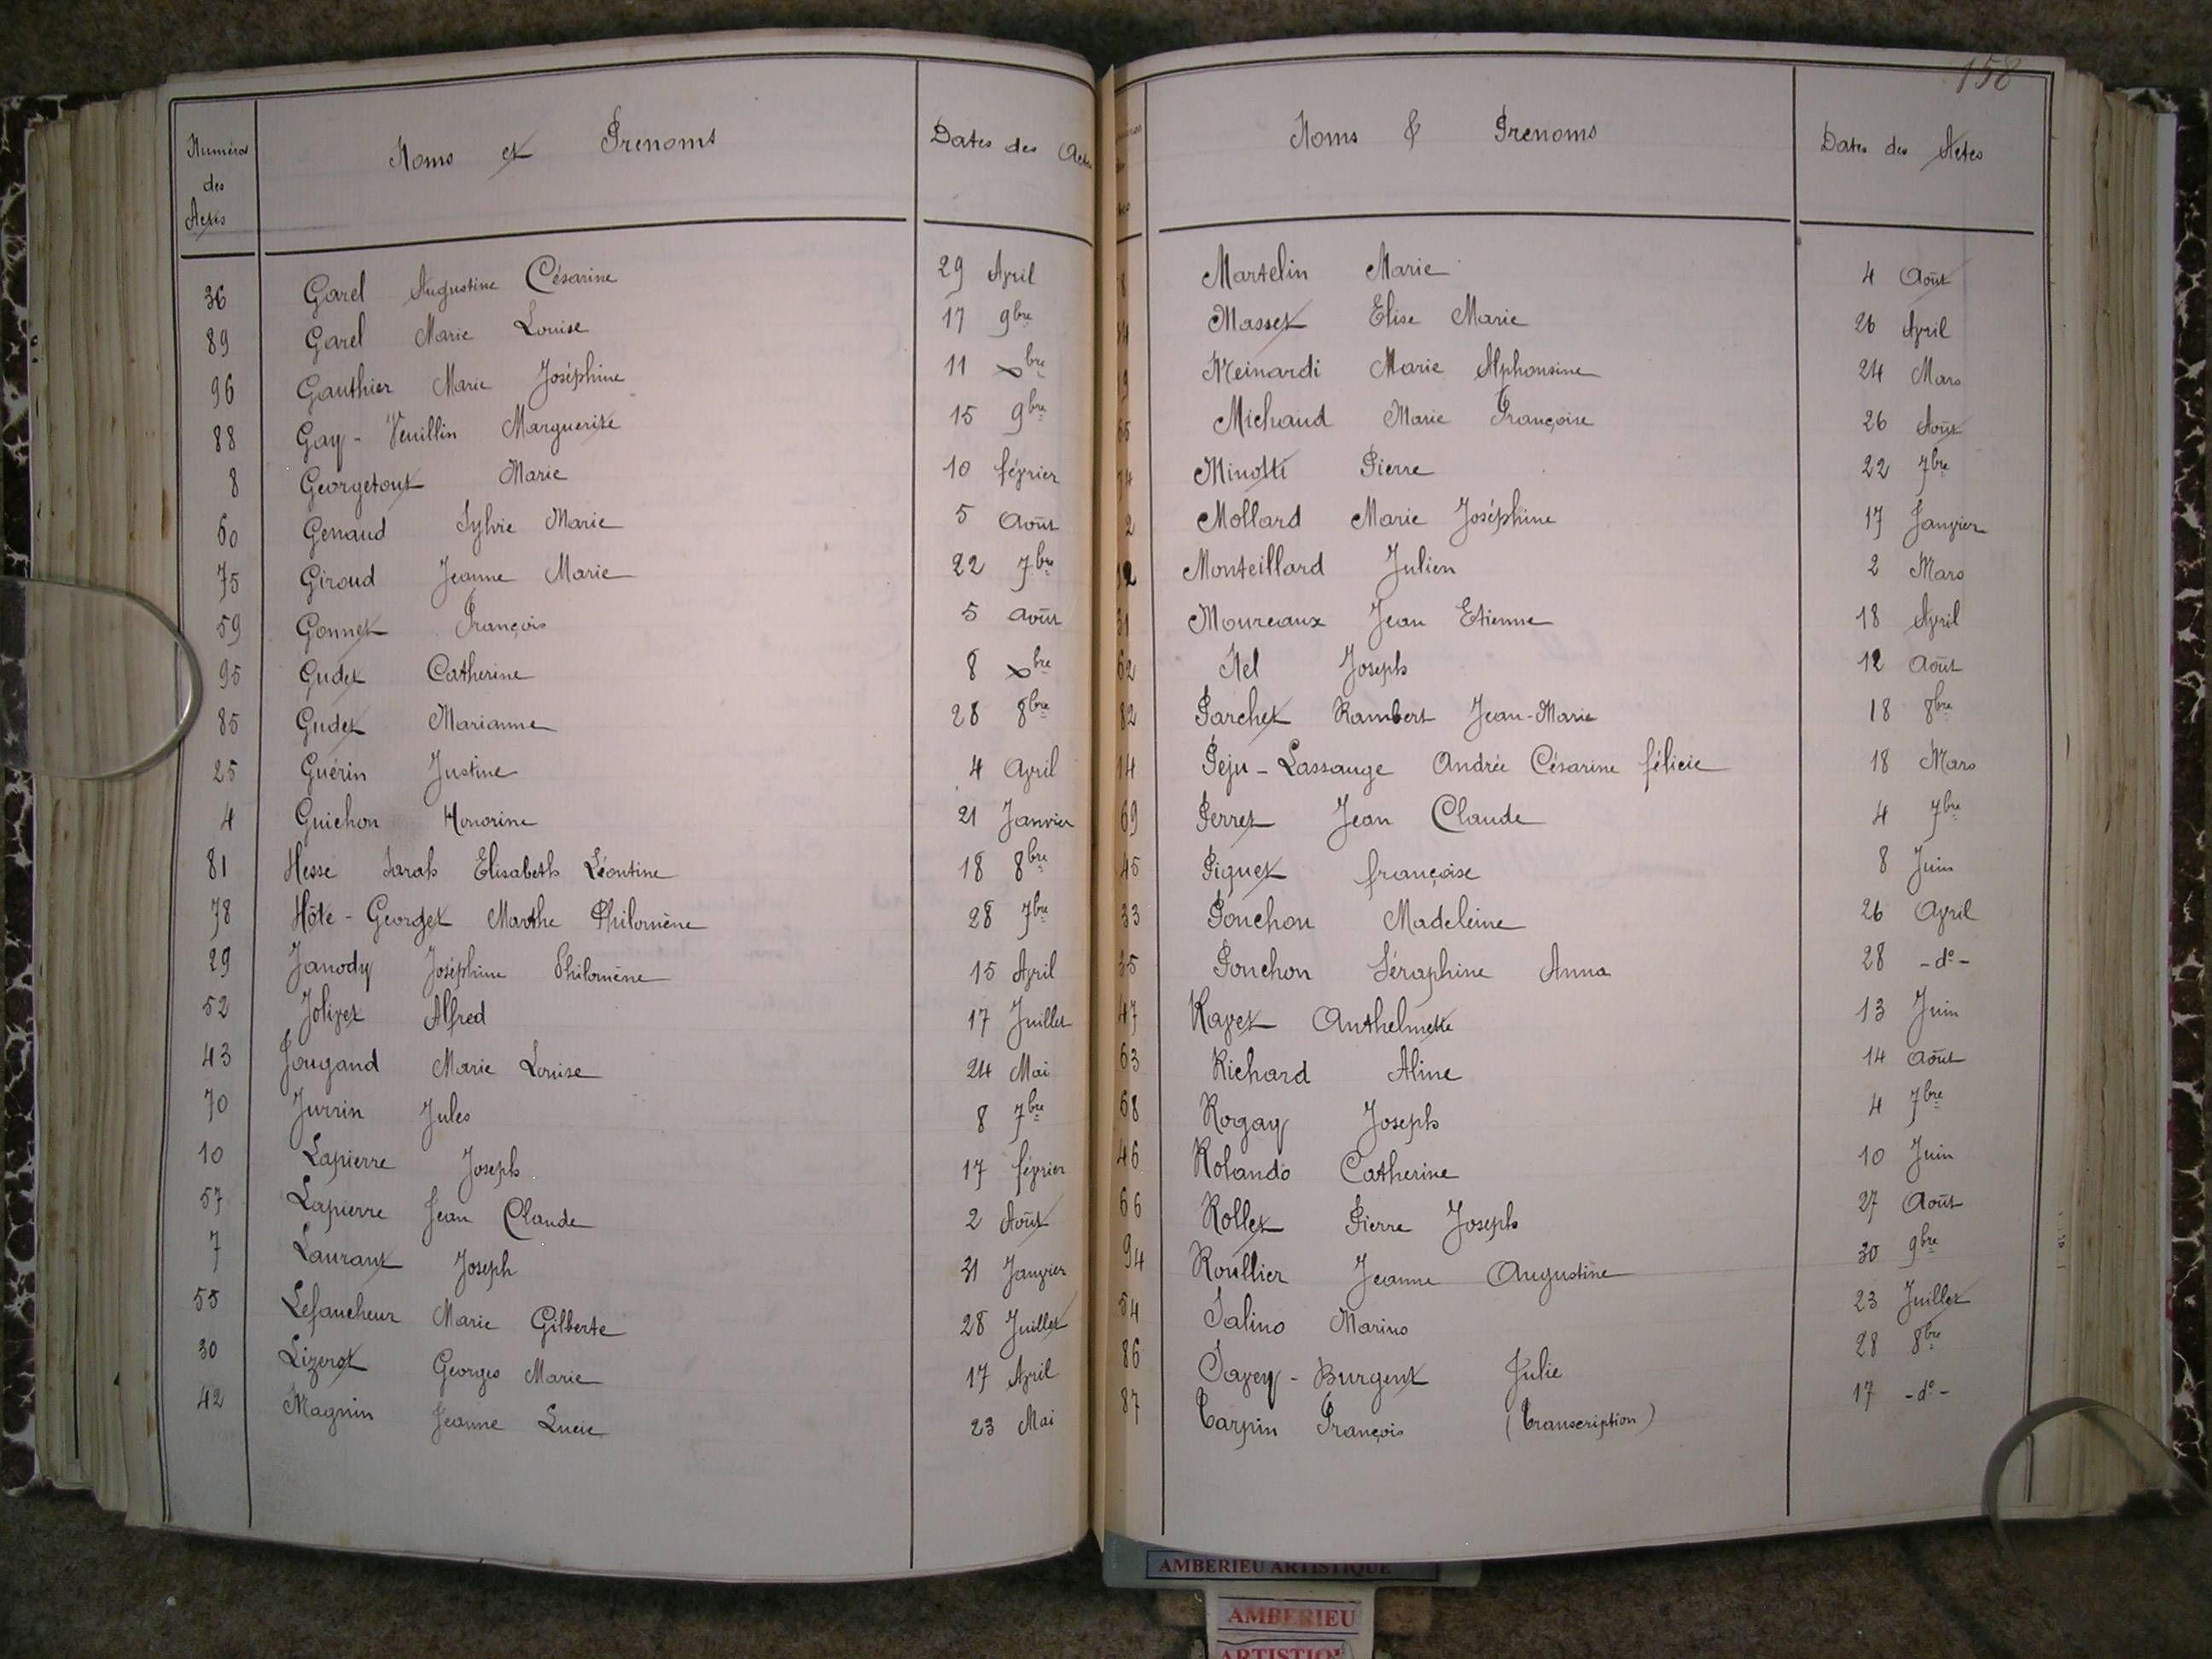 Numéros des Actes Noms et Prénoms Dates des Actes
36 Garel Augustine Césarine 29 Avril
89 Garel Marie Louise 17 9bre
96 Gauthier Marie Joséphine 11 xbre
88 Gay - Veuillin Marguerite 15 9bre
8 Georgetout Marie 10 février
60 Genaud Sylvie Marie 5 Août
75 Giroud Jeanne Marie 22 7bre
59 Gonnet François 5 Août
95 Gudet Catherine 8 xbre
85 Gudet Marianne 28 8bre
25 Guérin Justine 4 Avril
4 Guichon Honorine 21 Janvier
81 Hesse Sarah Elisabeth Léontine 18 8bre
78 Hôte - Georget Marthe Philomène 28 7bre
29 Janody Joséphine Philomène 15 Avril
52 Jolivet Alfred 17 Juillet
43 Jougand Marie Louise 24 Mai
70 Jurrin Jules 8 7bre
10 Lapierre Joseph 17 février
57 Lapierre Jean Claude 2 Août
7 Laurant Joseph 31 Janvier
55 Lefaucheur Marie Gilberte 28 Juillet
30 Lizerot Georges Marie 17 Avril
42 Magnin Jeanne Lucie 23 Mai
158
Noms & Prénoms Dates des Actes
Martelin Marie 4 Août
Masset Elise Marie 26 Avril
Meinardi Marie Alphonsine 24 Mars
65 Michaud Marie Françoise 26 Août
74 Minotti Pierre 22 7bre
2 Mollard Marie Joséphine 17 Janvier
12 Monteillard Julien 2 Mars
31 Moureaux Jean Etienne 18 Avril
62 Nel Joseph 12 Août
82 Parchet Rambert Jean-Marie 18 8bre
14 Peju - Lassauge Andrée Césarine félicie 18 Mars
69 Perret Jean Claude 4 7bre
45 Piquet françoise 8 Juin
33 Ponchon Madeleine 26 Avril
35 Ponchon Séraphine Anna 28 - do -
47 Ravet Anthelmette 13 Juin
63 Richard Aline 14 Août
68 Rogay Joseph 4 7bre
46 Rolando Catherine 10 Juin
66 Rollet Pierre Joseph 27 Août
94 Roullier Jeanne Augustine 30 9bre
54 Salino Marino 23 Juillet
86 Savey - Burgent Julie 28 8bre
87 Tarpin François (Transcription) 17 - do -
AMBERIEU ARTISTIQUE
AMBERIEU